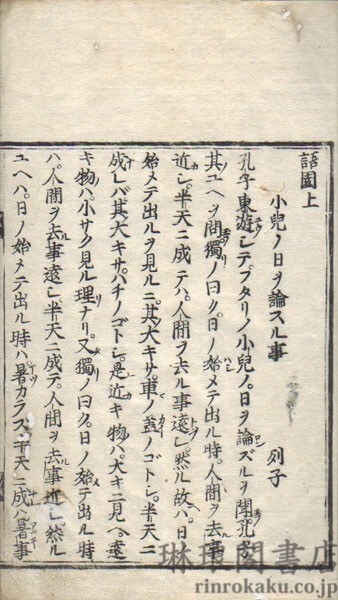 語園上
小兒ノ日ヲ論スル事 列子
孔子東遊シテフタリノ小兒ノ日ヲ論ズルヲ聞孔子
其ユヘヲ問獨ノ曰ク日ノ始メテ出ル時人間ヲ去事
近シ半天ニ成テハ人間ヲ去ル事遠シ然ル故ハ日ノ
始メテ出ルヲ見ルニ其大キサ車ノ蓋ノゴトシ半天ニ
成レバ其大キサハチノゴトシ是近キ物ハ大キニ見ヘ遠
キ物ハ小サク見ル理ナリ又獨ノ曰ク日ノ始テ出ル時
ハ人間ヲ去事遠シ半天ニ成テ人間ヲ去事近シ然ル
ユヘハ日ノ始メテ出ル時ハ暑カラズ半天ニ成ハ暑事
琳琅閣書店
rinrokaku.co.jp